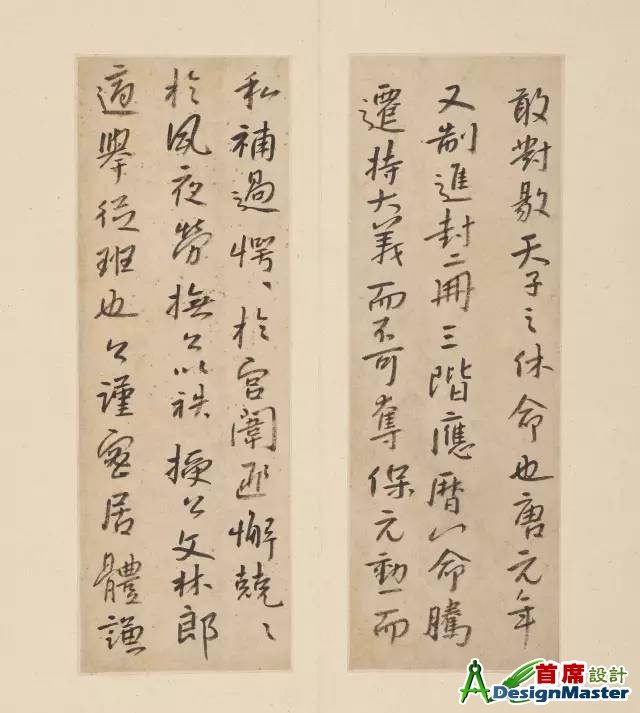 敢對敭天子之休命也唐元年
又制進封二冊三階應曆以命騰
遷持大義而不可奪保元勳而
私補過愕、於宮闈匪懈兢〻
於夙夜勞撫公以袟授公文林郎
適舉從班也公謹密居體謙
首席設計
DesignMaster